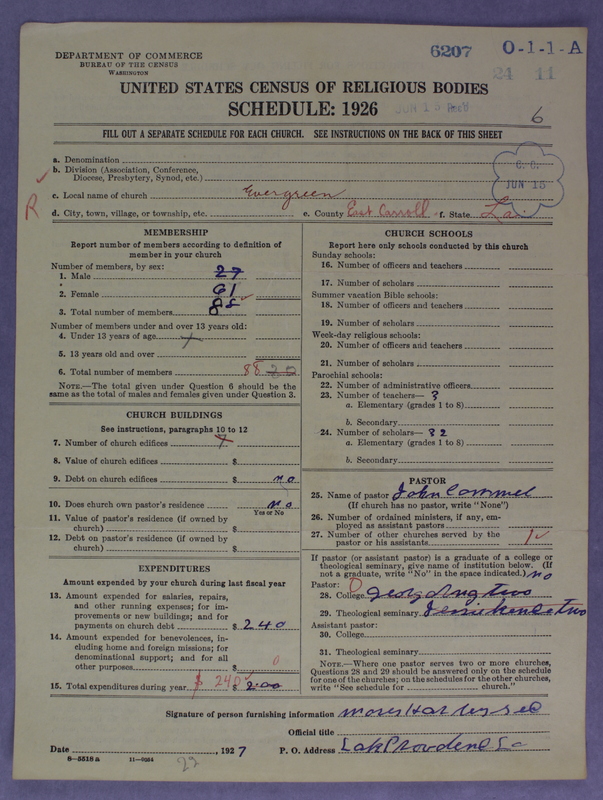 DEPARTMENT OF COMMERCE
BUREAU OF THE CENSUS
WASHINGTON
6207 O-1-1-A
24 11
UNITED STATES CENSUS OF RELIGIOUS BODIES
SCHEDULE: 1926
JUN 15 Rec'd
6
FILL OUT A SEPARATE SCHEDULE FOR EACH CHURCH. SEE INSTRUCTIONS ON THE BACK OF THIS SHEET
a. Denomination
b. Division (Association, Conference,
Diocese, Presbytery, Synod, etc.)
C. C.
JUN 15
c. Local name of church Evergreen
R
d. City, town, village, or township, etc. e. County East Carroll f. State La
MEMBERSHIP
Report number of members according to definition of
member in your church
Number of members, by sex:
1. Male 27
2. Female 61
3. Total number of members 88
Number of members under and over 13 years old:
4. Under 13 years of age
5. 13 years old and over
6. Total number of members 88
NOTE.—The total given under Question 6 should be the
same as the total of males and females given under Question 3.
CHURCH BUILDINGS
See instructions, paragraphs 10 to 12
7. Number of church edifices
8. Value of church edifices $
9. Debt on church edifices $ no
10. Does church own pastor's residence No
Yes or No
11. Value of pastor's residence (if owned by
church) $
12. Debt on pastor's residence (if owned by
church) $
EXPENDITURES
Amount expended by your church during last fiscal year
13. Amount expended for salaries, repairs,
and other running expenses; for im-
provements or new buildings; and for
payments on church debt $ 240
14. Amount expended for benevolences, in-
cluding home and foreign missions; for
denominational support; and for all
other purposes $ 0
15. Total expenditures during year $ 240 $ 2.00
CHURCH SCHOOLS
Report here only schools conducted by this church
Sunday schools:
16. Number of officers and teachers
17. Number of scholars
Summer vacation Bible schools:
18. Number of officers and teachers
19. Number of scholars
Week-day religious schools:
20. Number of officers and teachers
21. Number of scholars
Parochial schools:
22. Number of administrative officers
23. Number of teachers— 3
a. Elementary (grades 1 to 8)
b. Secondary
24. Number of scholars— 32
a. Elementary (grades 1 to 8)
b. Secondary
PASTOR
25. Name of pastor John
(If church has no pastor, write "None")
26. Number of ordained ministers, if any, em-
ployed as assistant pastors
27. Number of other churches served by the
pastor or his assistants
If pastor (or assistant pastor) is a graduate of a college or
theological seminary, give name of institution below. (If
not a graduate, write "No" in the space indicated.) no
Pastor:
28. College
29. Theological seminary
Assistant pastor:
30. College
31. Theological seminary
NOTE.—Where one pastor serves two or more churches,
Questions 28 and 29 should be answered only on the schedule
for one of the churches; on the schedules for the other churches,
write "See schedule for church."
Signature of person furnishing information
Official title
Date , 1927 P. O. Address Lak Providene La
8—5518 a 11—9054
22